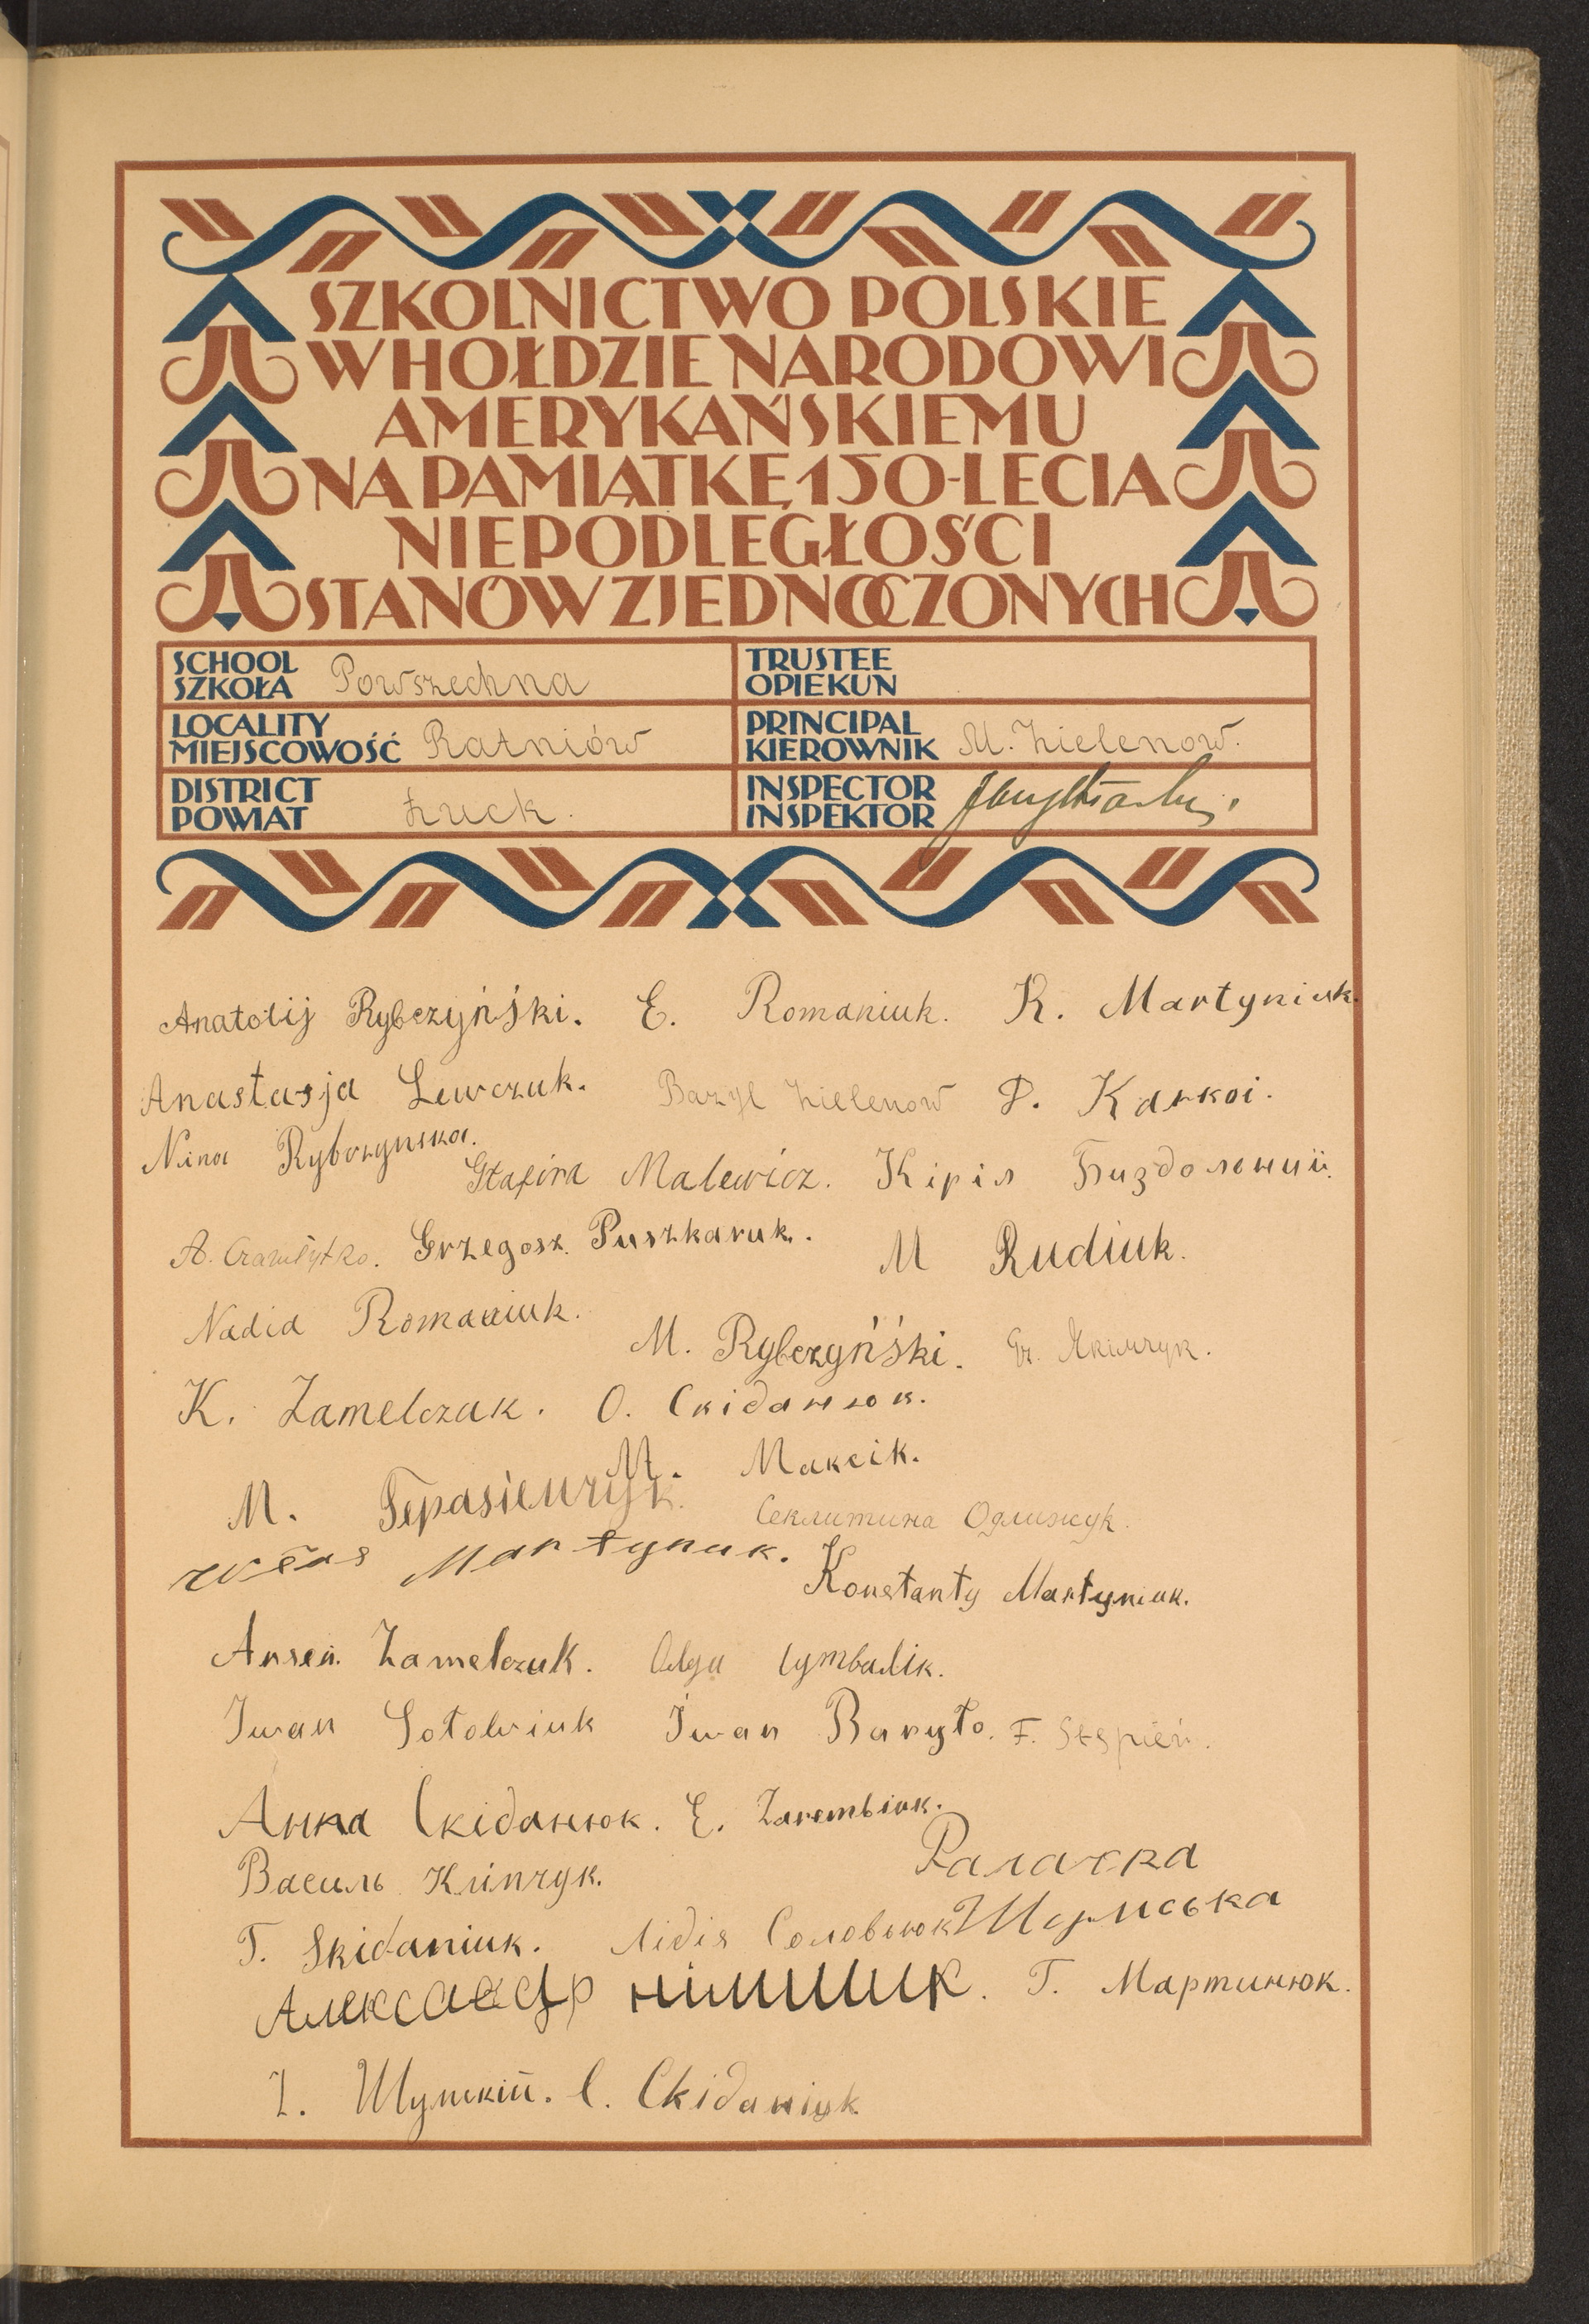 SZKOLNICTWO POLSKIE
W HOŁDZIE NARODOWI
AMERYKAŃSKIEMU
NA PAMIĄTKĘ 150-LECIA
NIEPODLEGŁOŚCI
STANÓW ZJEDNOCZONYCH
SCHOOL
SZKOŁA Powszechna
TRUSTEE
OPIEKUN
LOCALITY
MIEJSCOWOŚĆ Ratniów
PRINCIPAL
KIEROWNIK M. Zielenow.
DISTRICT
POWIAT Łuck.
INSPECTOR
INSPEKTOR
Anatolij Rybczyński. E. Romaniuk. K. Martyniuk.
Anastasja Lewczuk. Bazyl Zielenow P. Karkoi.
Nina Rybczynska.
Malewicz. Кіріл
A. Grzegosz. Puszkaruk. M Rudiuk.
Nadia Romaniuk.
M. Rybczyński. Gr.
K. Zamelczuk. О. Скіданюк.
M. Makcik.
M.
Секлитина Одлижук.
Martynuk.
Konstanty Martyniuk.
Arsen. Zamelczuk. Olga Cymbalik.
Iwan Sołowiuk Iwan Baryło. F. Stępień.
Анна Скіданюк. E. Zarembiuk.
Василь
T. Skidaniuk. Лідія Соловьюк
Шумська
Г. Мартинюк.
Шумскій. C. Ckidaniuk